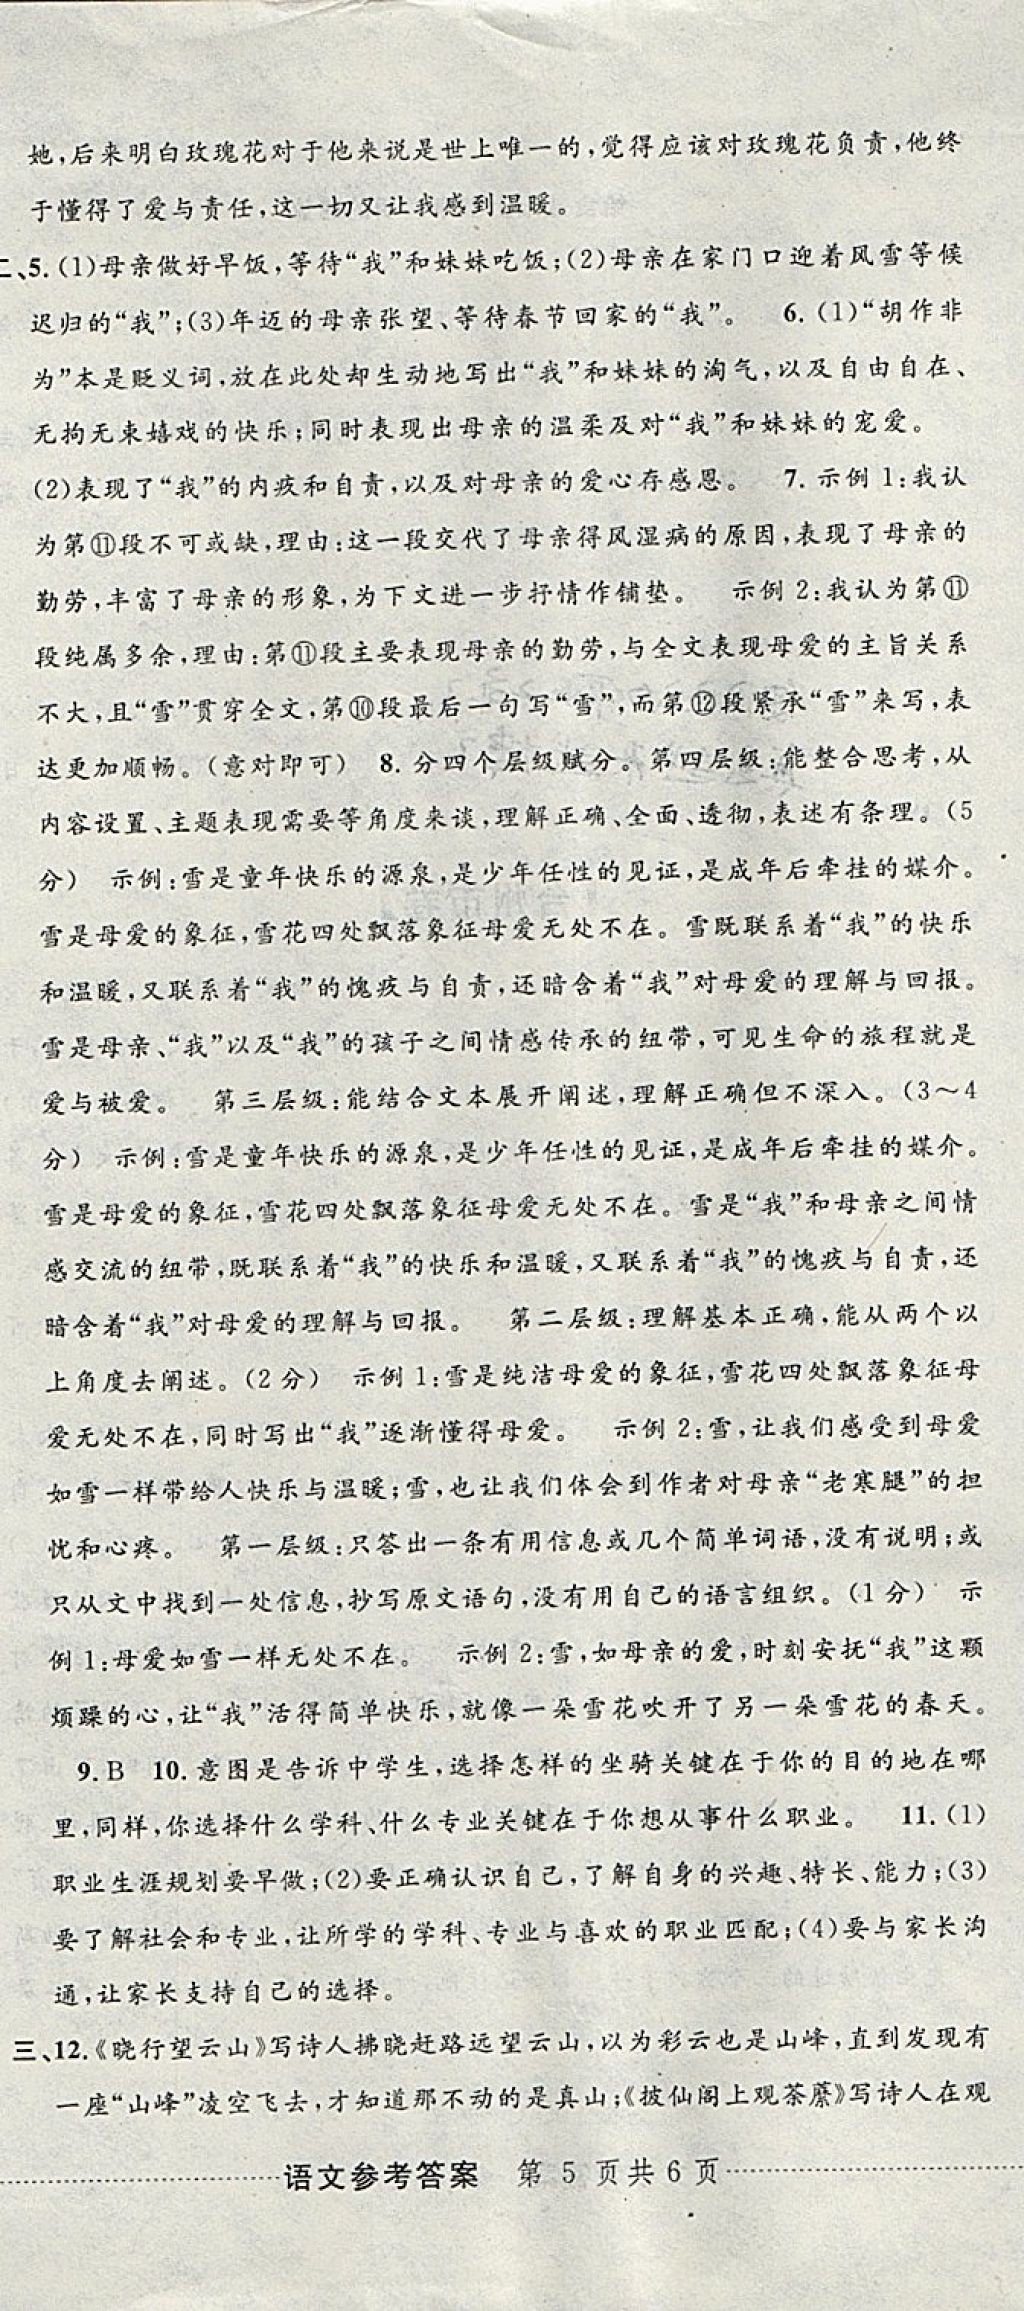 她,后来明白玫瑰花对于他来说是世上唯一的,觉得应该对玫瑰花负责,他终
于懂得了爱与责任,这一切又让我感到温暖。
二、5.(1)母亲做好早饭,等待“我”和妹妹吃饭;(2)母亲在家门口迎着风雪等候
迟归的“我”;(3)年迈的母亲张望、等待春节回家的“我”。 6.(1)“胡作非
为”本是贬义词,放在此处却生动地写出“我”和妹妹的淘气,以及自由自在、
无拘无束嬉戏的快乐;同时表现出母亲的温柔及对“我”和妹妹的宠爱。
(2)表现了“我”的内疚和自责,以及对母亲的爱心存感恩。 7.示例1:我认
为第⑪段不可或缺,理由:这一段交代了母亲得风湿病的原因,表现了母亲的
勤劳,丰富了母亲的形象,为下文进一步抒情作铺垫。 示例2:我认为第⑪
段纯属多余,理由:第⑪段主要表现母亲的勤劳,与全文表现母爱的主旨关系
不大,且“雪”贯穿全文,第⑩段最后一句写“雪”,而第⑫段紧承“雪”来写,表
达更加顺畅。(意对即可) 8.分四个层级赋分。第四层级:能整合思考,从
内容设置、主题表现需要等角度来谈,理解正确、全面、透彻,表述有条理。(5
分) 示例:雪是童年快乐的源泉,是少年任性的见证,是成年后牵挂的媒介。
雪是母爱的象征,雪花四处飘落象征母爱无处不在。雪既联系着“我”的快乐
和温暖,又联系着“我”的愧疚与自责,还暗含着“我”对母爱的理解与回报。
雪是母亲、“我”以及“我”的孩子之间情感传承的纽带,可见生命的旅程就是
爱与被爱。 第三层级:能结合文本展开阐述,理解正确但不深入。(3～4
分) 示例:雪是童年快乐的源泉,是少年任性的见证,是成年后牵挂的媒介。
雪是母爱的象征,雪花四处飘落象征母爱无处不在。雪是“我”和母亲之间情
感交流的纽带,既联系着“我”的快乐和温暖,又联系着“我”的愧疚与自责,还
暗含着“我”对母爱的理解与回报。 第二层级:理解基本正确,能从两个以
上角度去阐述。(2分) 示例1:雪是纯洁母爱的象征,雪花四处飘落象征母
爱无处不在,同时写出“我”逐渐懂得母爱。 示例2:雪,让我们感受到母爱
如雪一样带给人快乐与温暖;雪,也让我们体会到作者对母亲“老寒腿”的担
忧和心疼。 第一层级:只答出一条有用信息或几个简单词语,没有说明;或
只从文中找到一处信息,抄写原文语句,没有用自己的语言组织。(1分) 示
例1:母爱如雪一样无处不在。 示例2:雪,如母亲的爱,时刻安抚“我”这颗
烦躁的心,让“我”活得简单快乐,就像一朵雪花吹开了另一朵雪花的春天。
9.B 10.意图是告诉中学生,选择怎样的坐骑关键在于你的目的地在哪
里,同样,你选择什么学科、什么专业关键在于你想从事什么职业。 11.(1)
职业生涯规划要早做;(2)要正确认识自己,了解自身的兴趣、特长、能力;(3)
要了解社会和专业,让所学的学科、专业与喜欢的职业匹配;(4)要与家长沟
通,让家长支持自己的选择。
三、12.《晓行望云山》写诗人拂晓赶路远望云山,以为彩云也是山峰,直到发现有
一座“山峰”凌空飞去,才知道那不动的是真山;《披仙阁上观荼蘼》写诗人在观
语文参考答案 第 5 页共 6 页